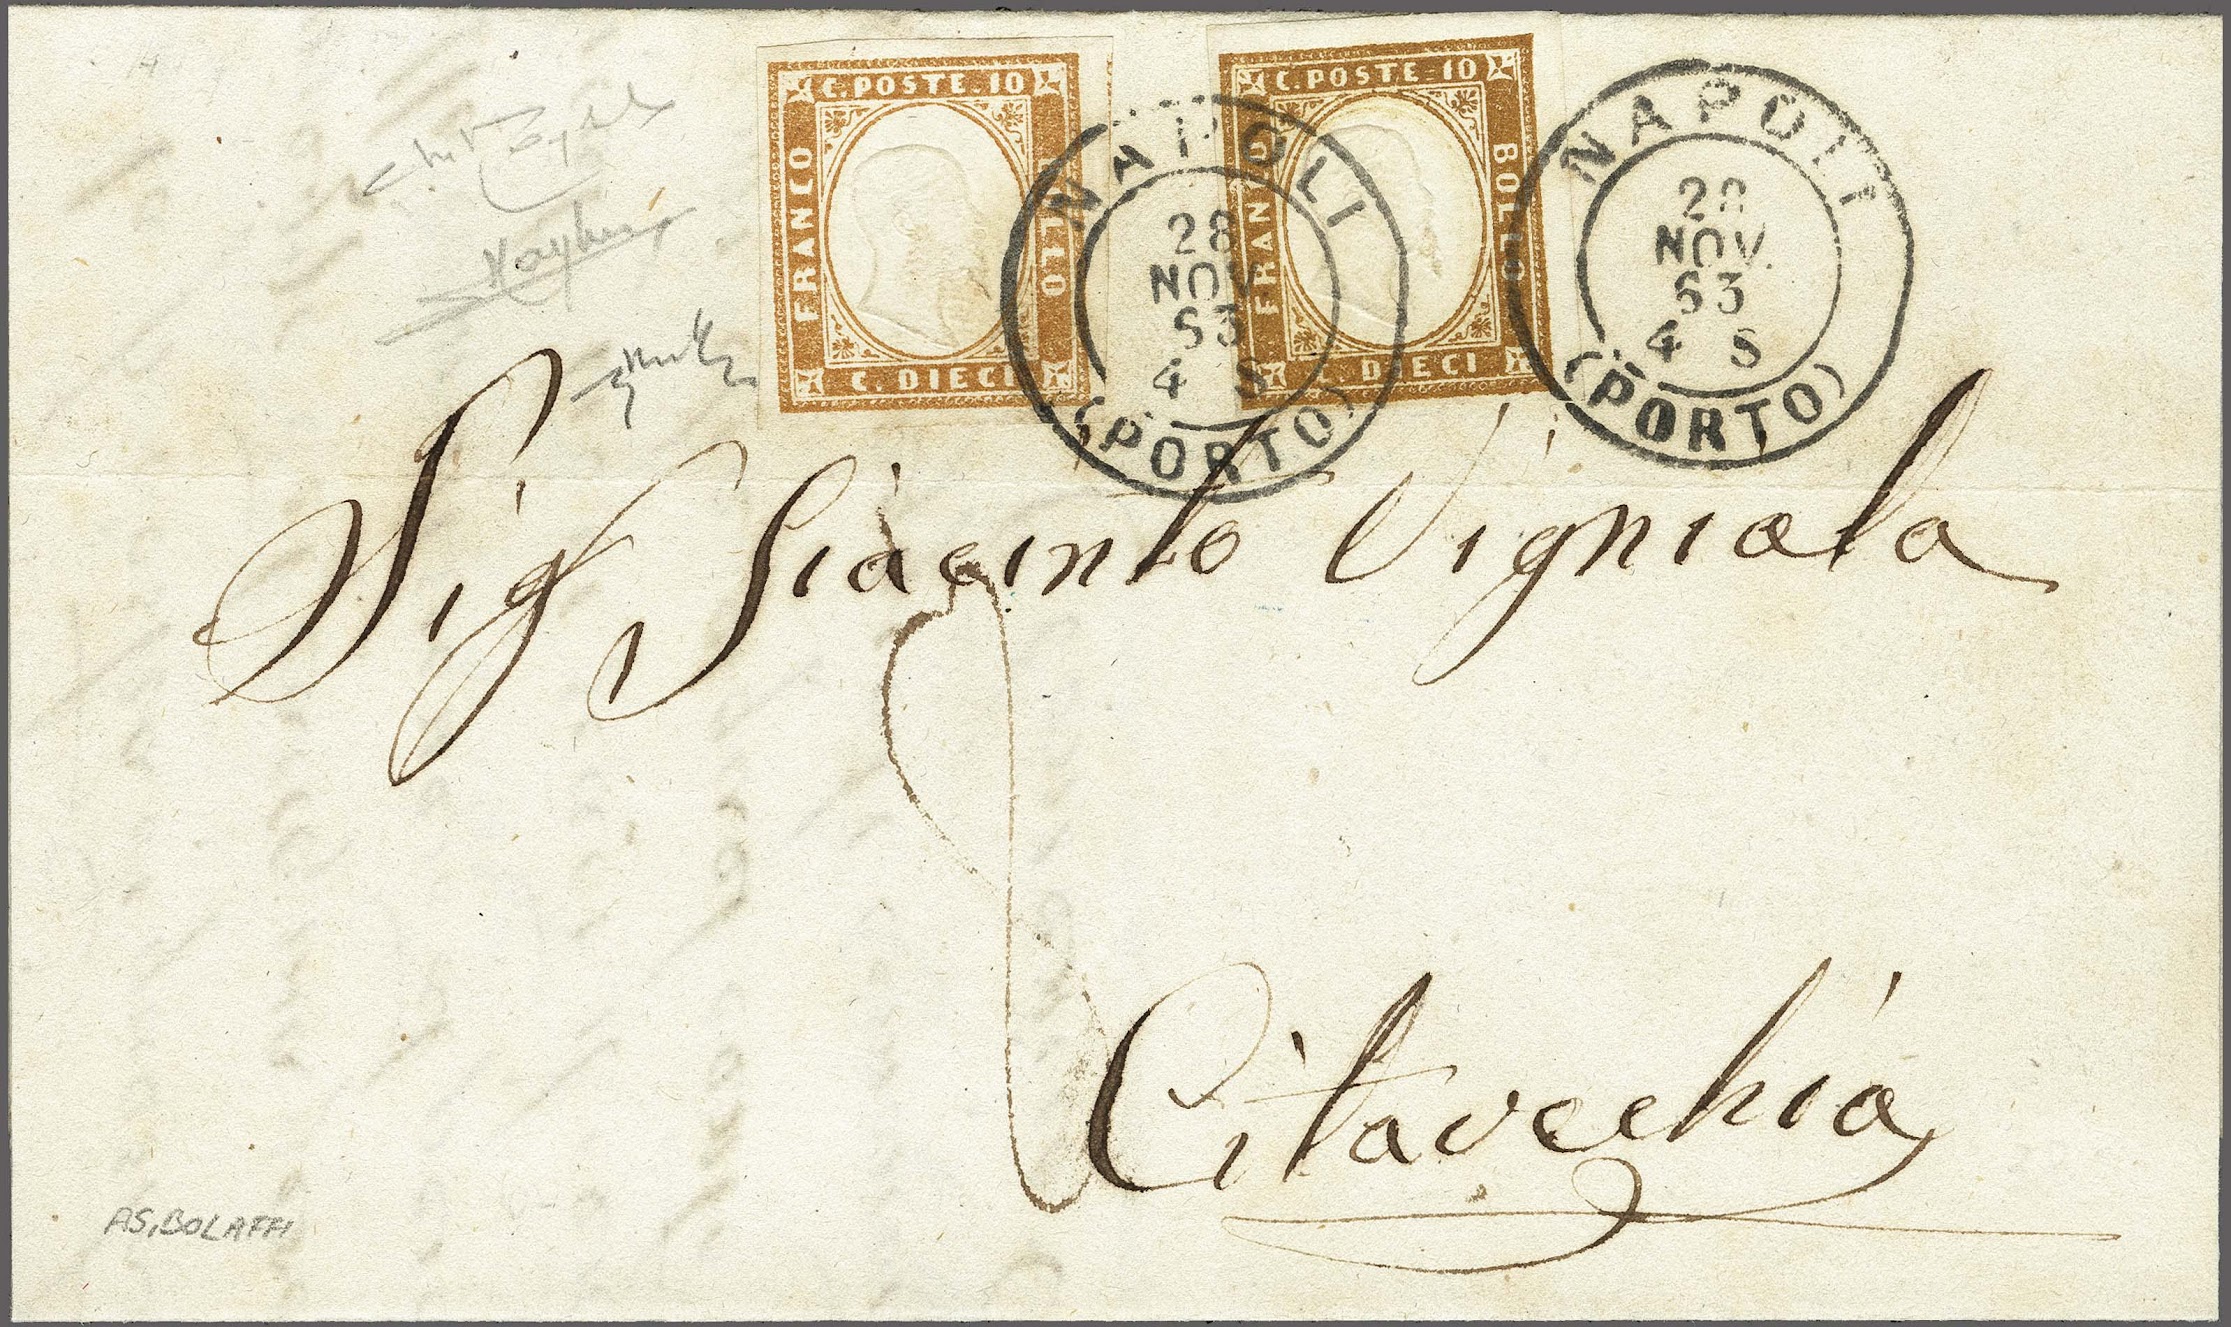 C. POSTE. 10
FRANCO
BOLLO
C. DIECI
C. POSTE. 10
FRANCO
BOLLO
C. DIECI
NAPOLI
28
NOV.
63
4 S
(PORTO)
NAPOLI
28
NOV.
63
4 S
(PORTO)
Sig Giacinto Vigniola
Citavechia
AS. BOLAFFI